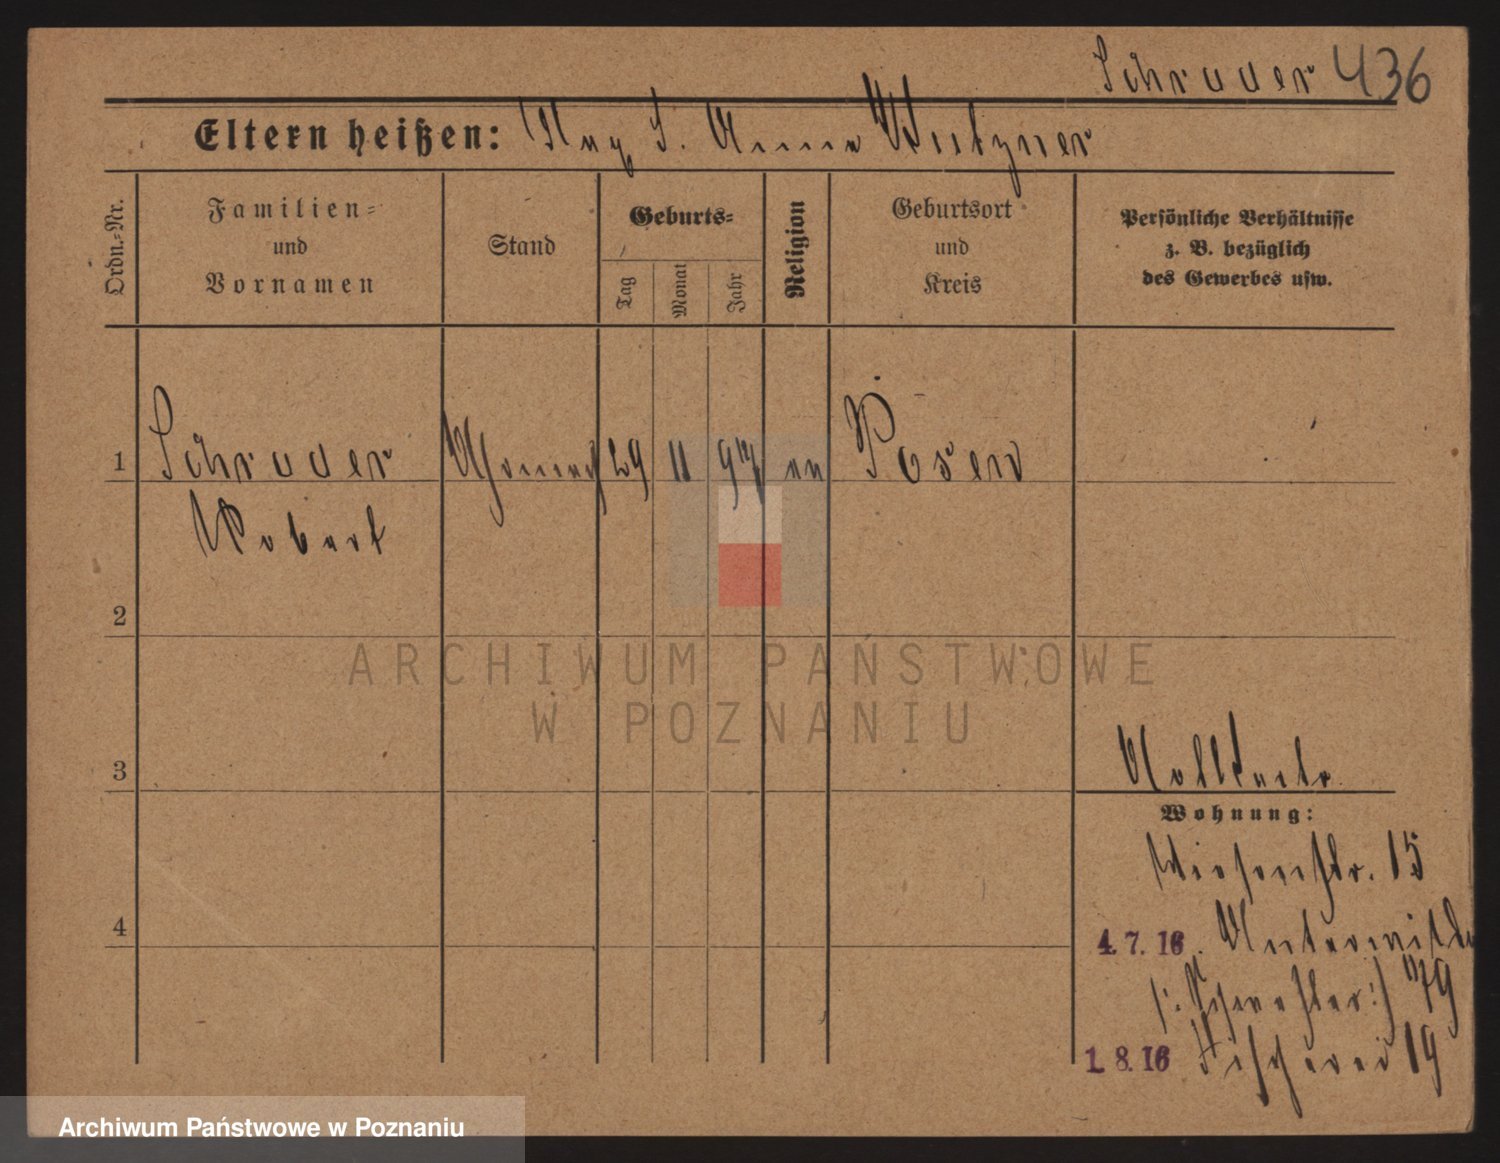 Schrader 436
Eltern heißen: Aug S. Anna Kutzner
Ordn.-Nr.
Familien-
und
Vornamen
Stand
Geburts-
Tag
Monat
Jahr
Religion
Geburtsort
und
Kreis
Persönliche Verhältnisse
z. B. bezüglich
des Gewerbes usw.
1 Schrader 29 11 97 Posen
Robert
2
ARCHIWUM PAŃSTWOWE
W POZNANIU
3
Wohnung:
Wiesenstr. 15
4
4. 7. 16.
(: Schwester :) 79
1. 8. 16 Fischerei 19
Archiwum Państwowe w Poznaniu